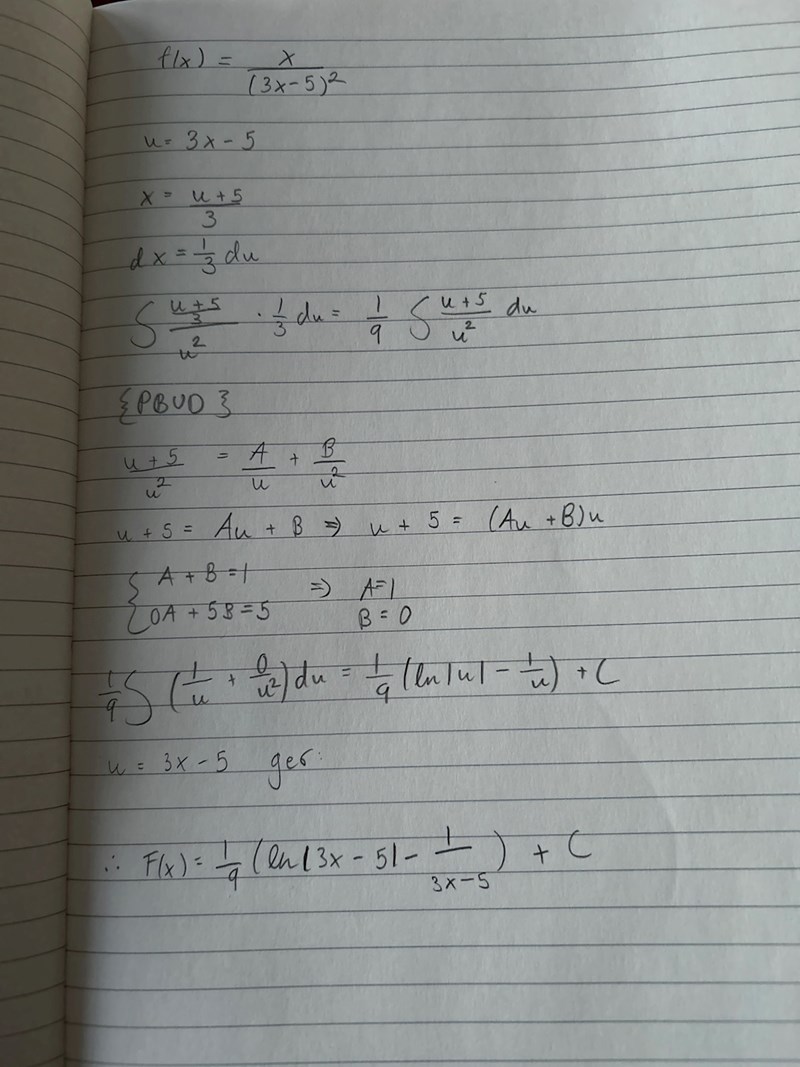 f(x) = x/(3x-5)²
u = 3x - 5
x = (u + 5)/3
dx = 1/3 du
∫ ((u + 5)/3)/u² · 1/3 du = 1/9 ∫ (u + 5)/u² du
{PBUD}
(u + 5)/u² = A/u + B/u²
u + 5 = Au + B ⇒ u + 5 = (Au + B)u
{ A + B = 1 ⇒ A = 1
{ 0A + 5B = 5 B = 0
1/9 ∫ (1/u + 0/u²) du = 1/9 (ln|u| - 1/u) + C
u = 3x - 5 ger:
∴ F(x) = 1/9 (ln|3x - 5| - 1/(3x-5)) + C